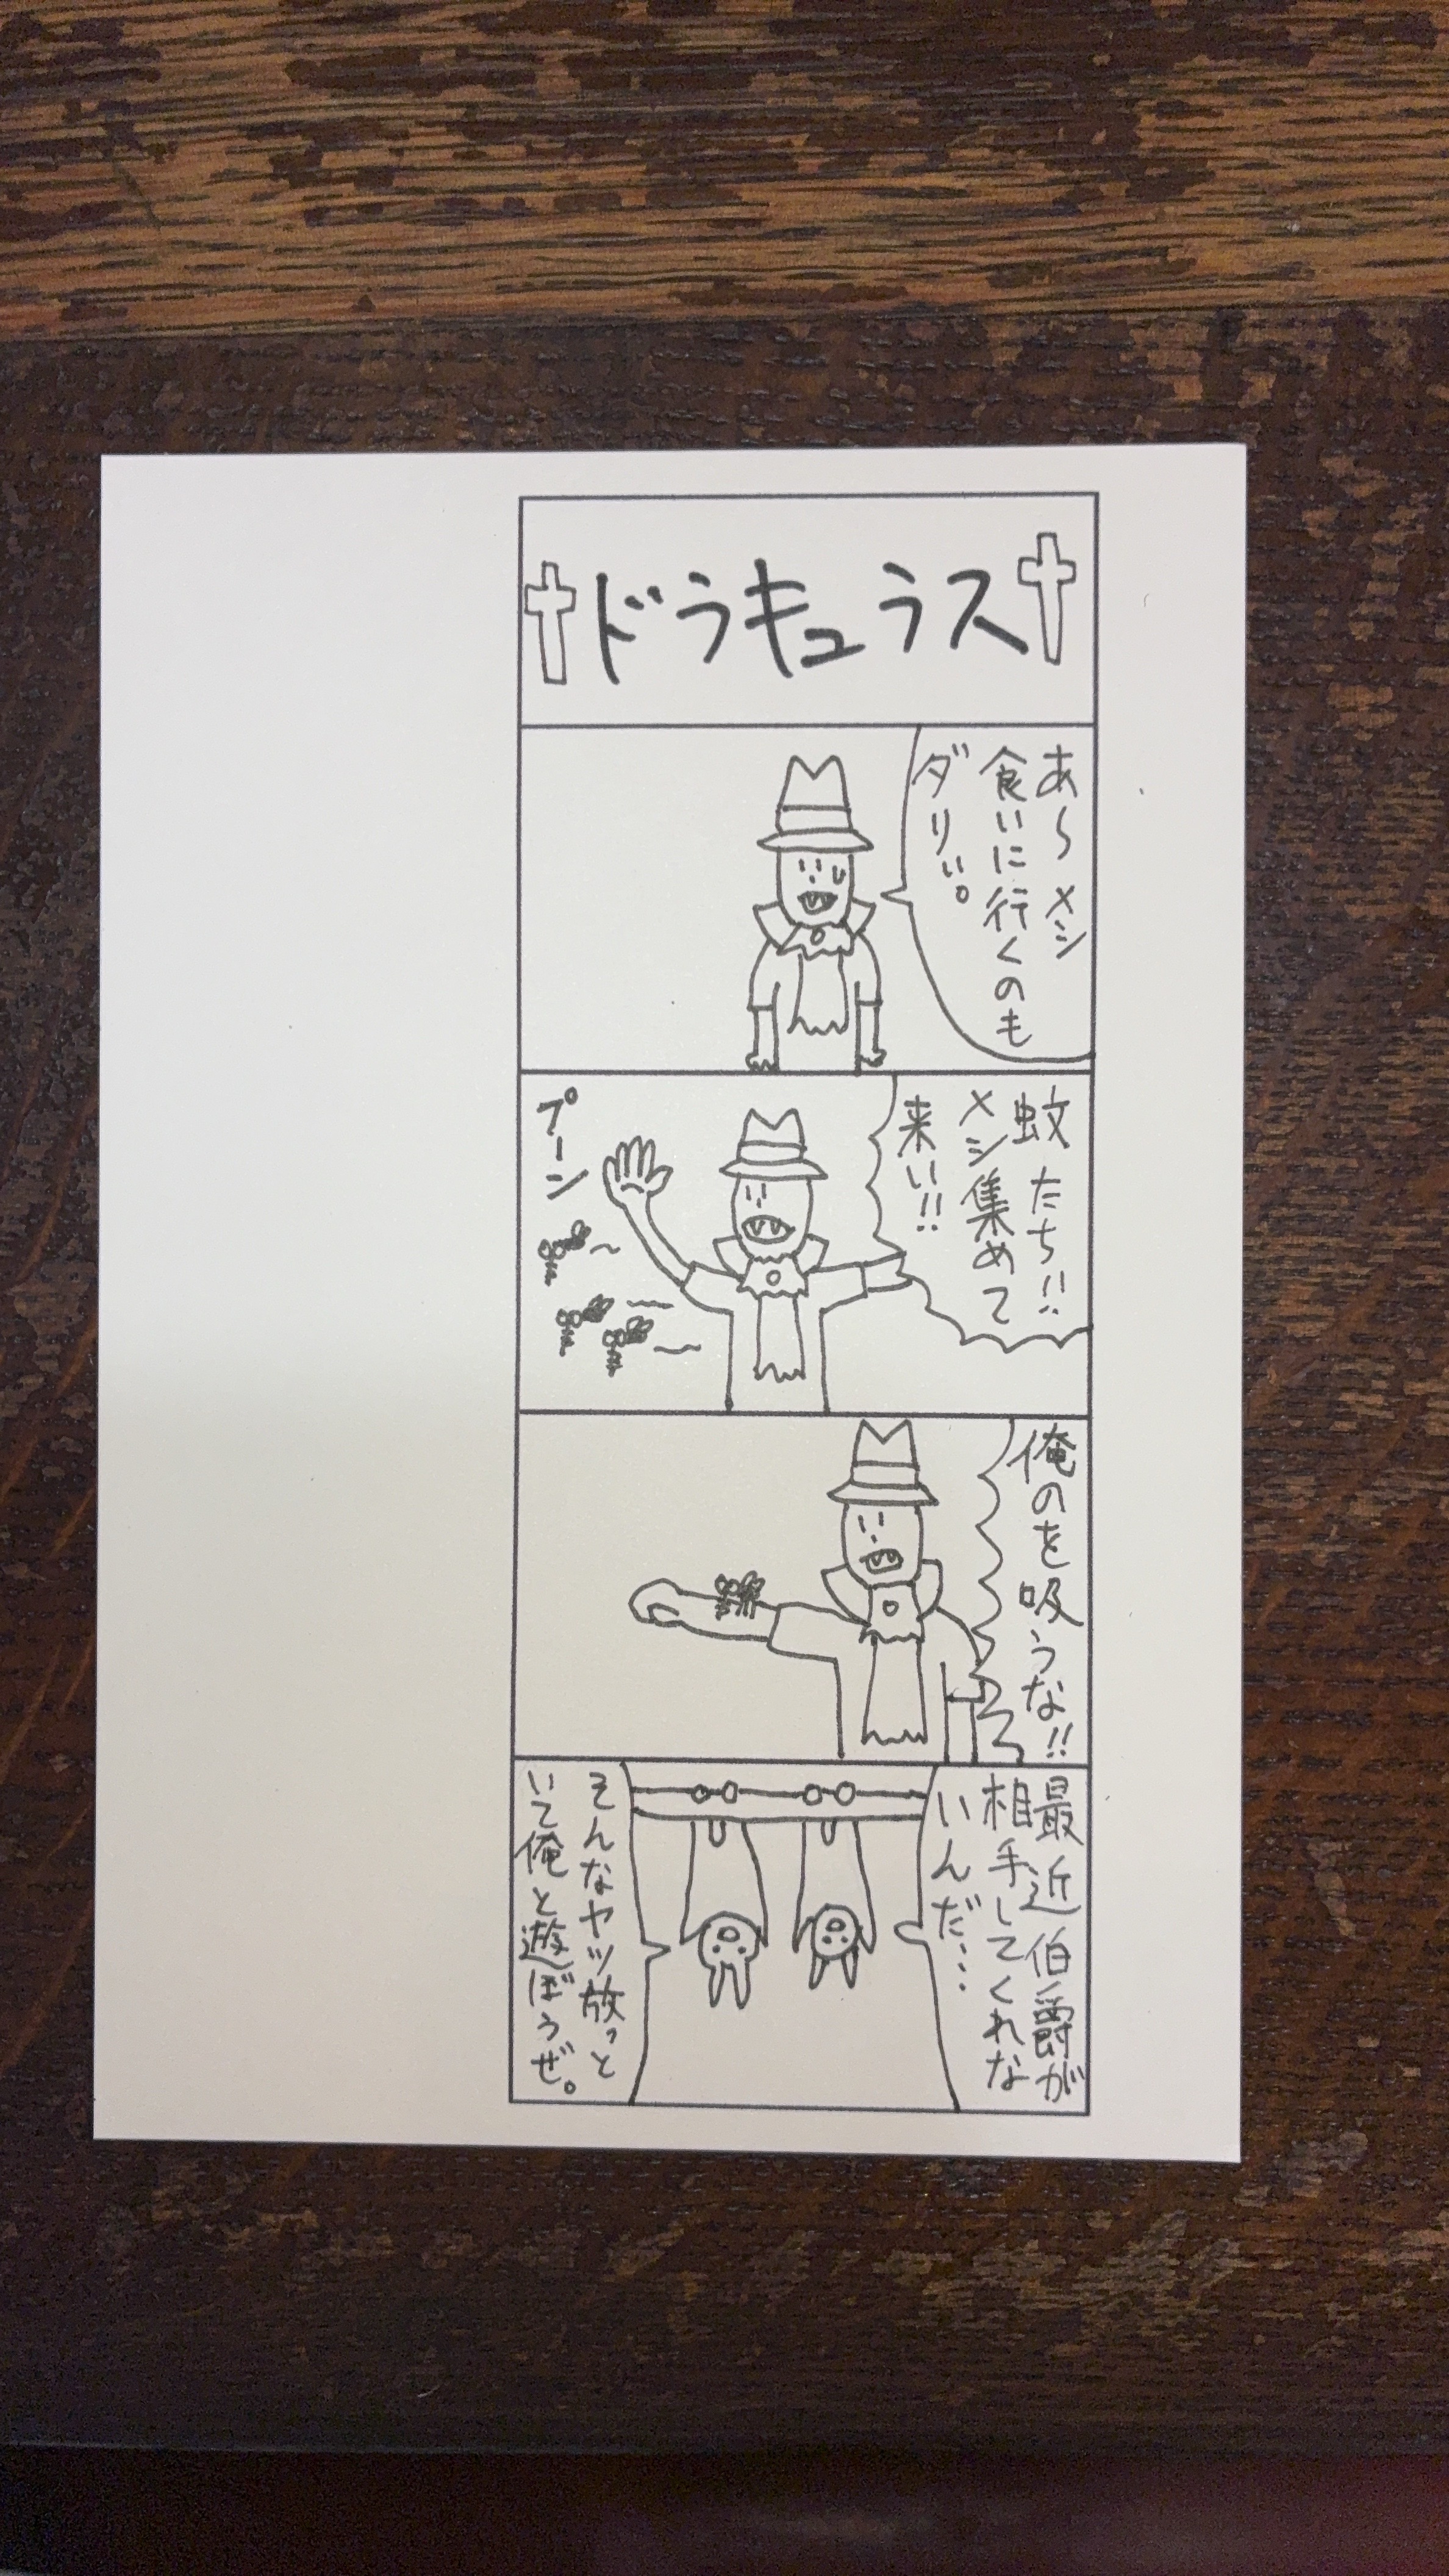 ドラキュラス
あ～メシ
食いに行くのも
ダリぃ。
蚊たち!!
メシ集めて
来い!!
プーン
俺のを吸うな!!
最近伯爵が
相手してくれな
いんだ…
そんなヤツ放っと
いて俺と遊ぼうぜ。